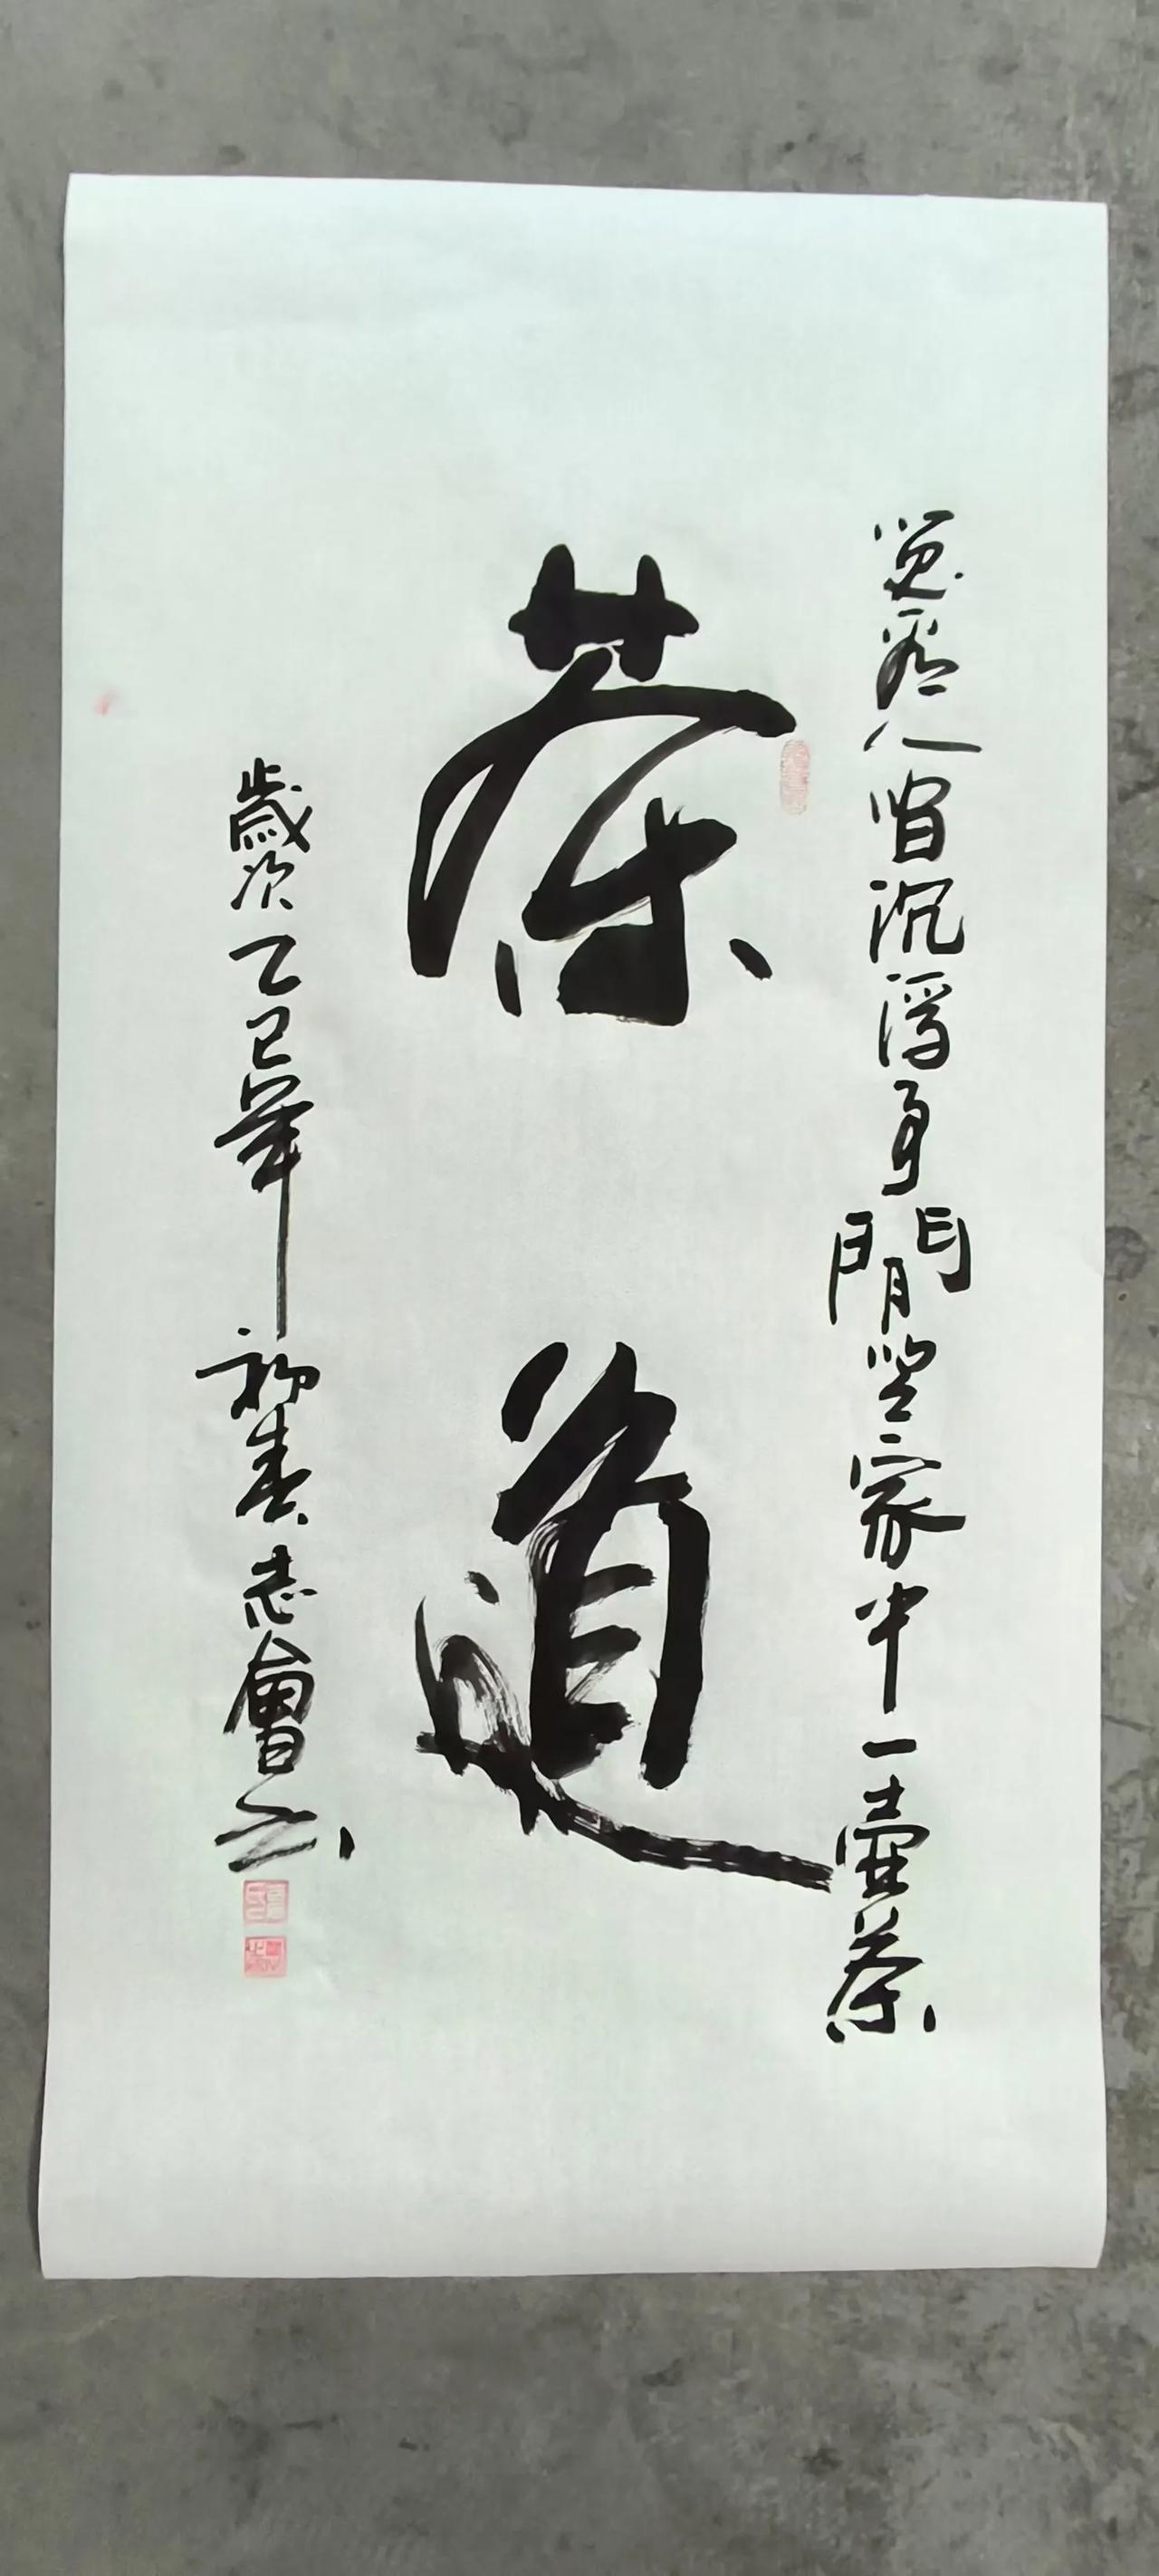 覚看人間沉浮事
閒坐家中一壺茶
茶道
歲次乙巳年初春志會書